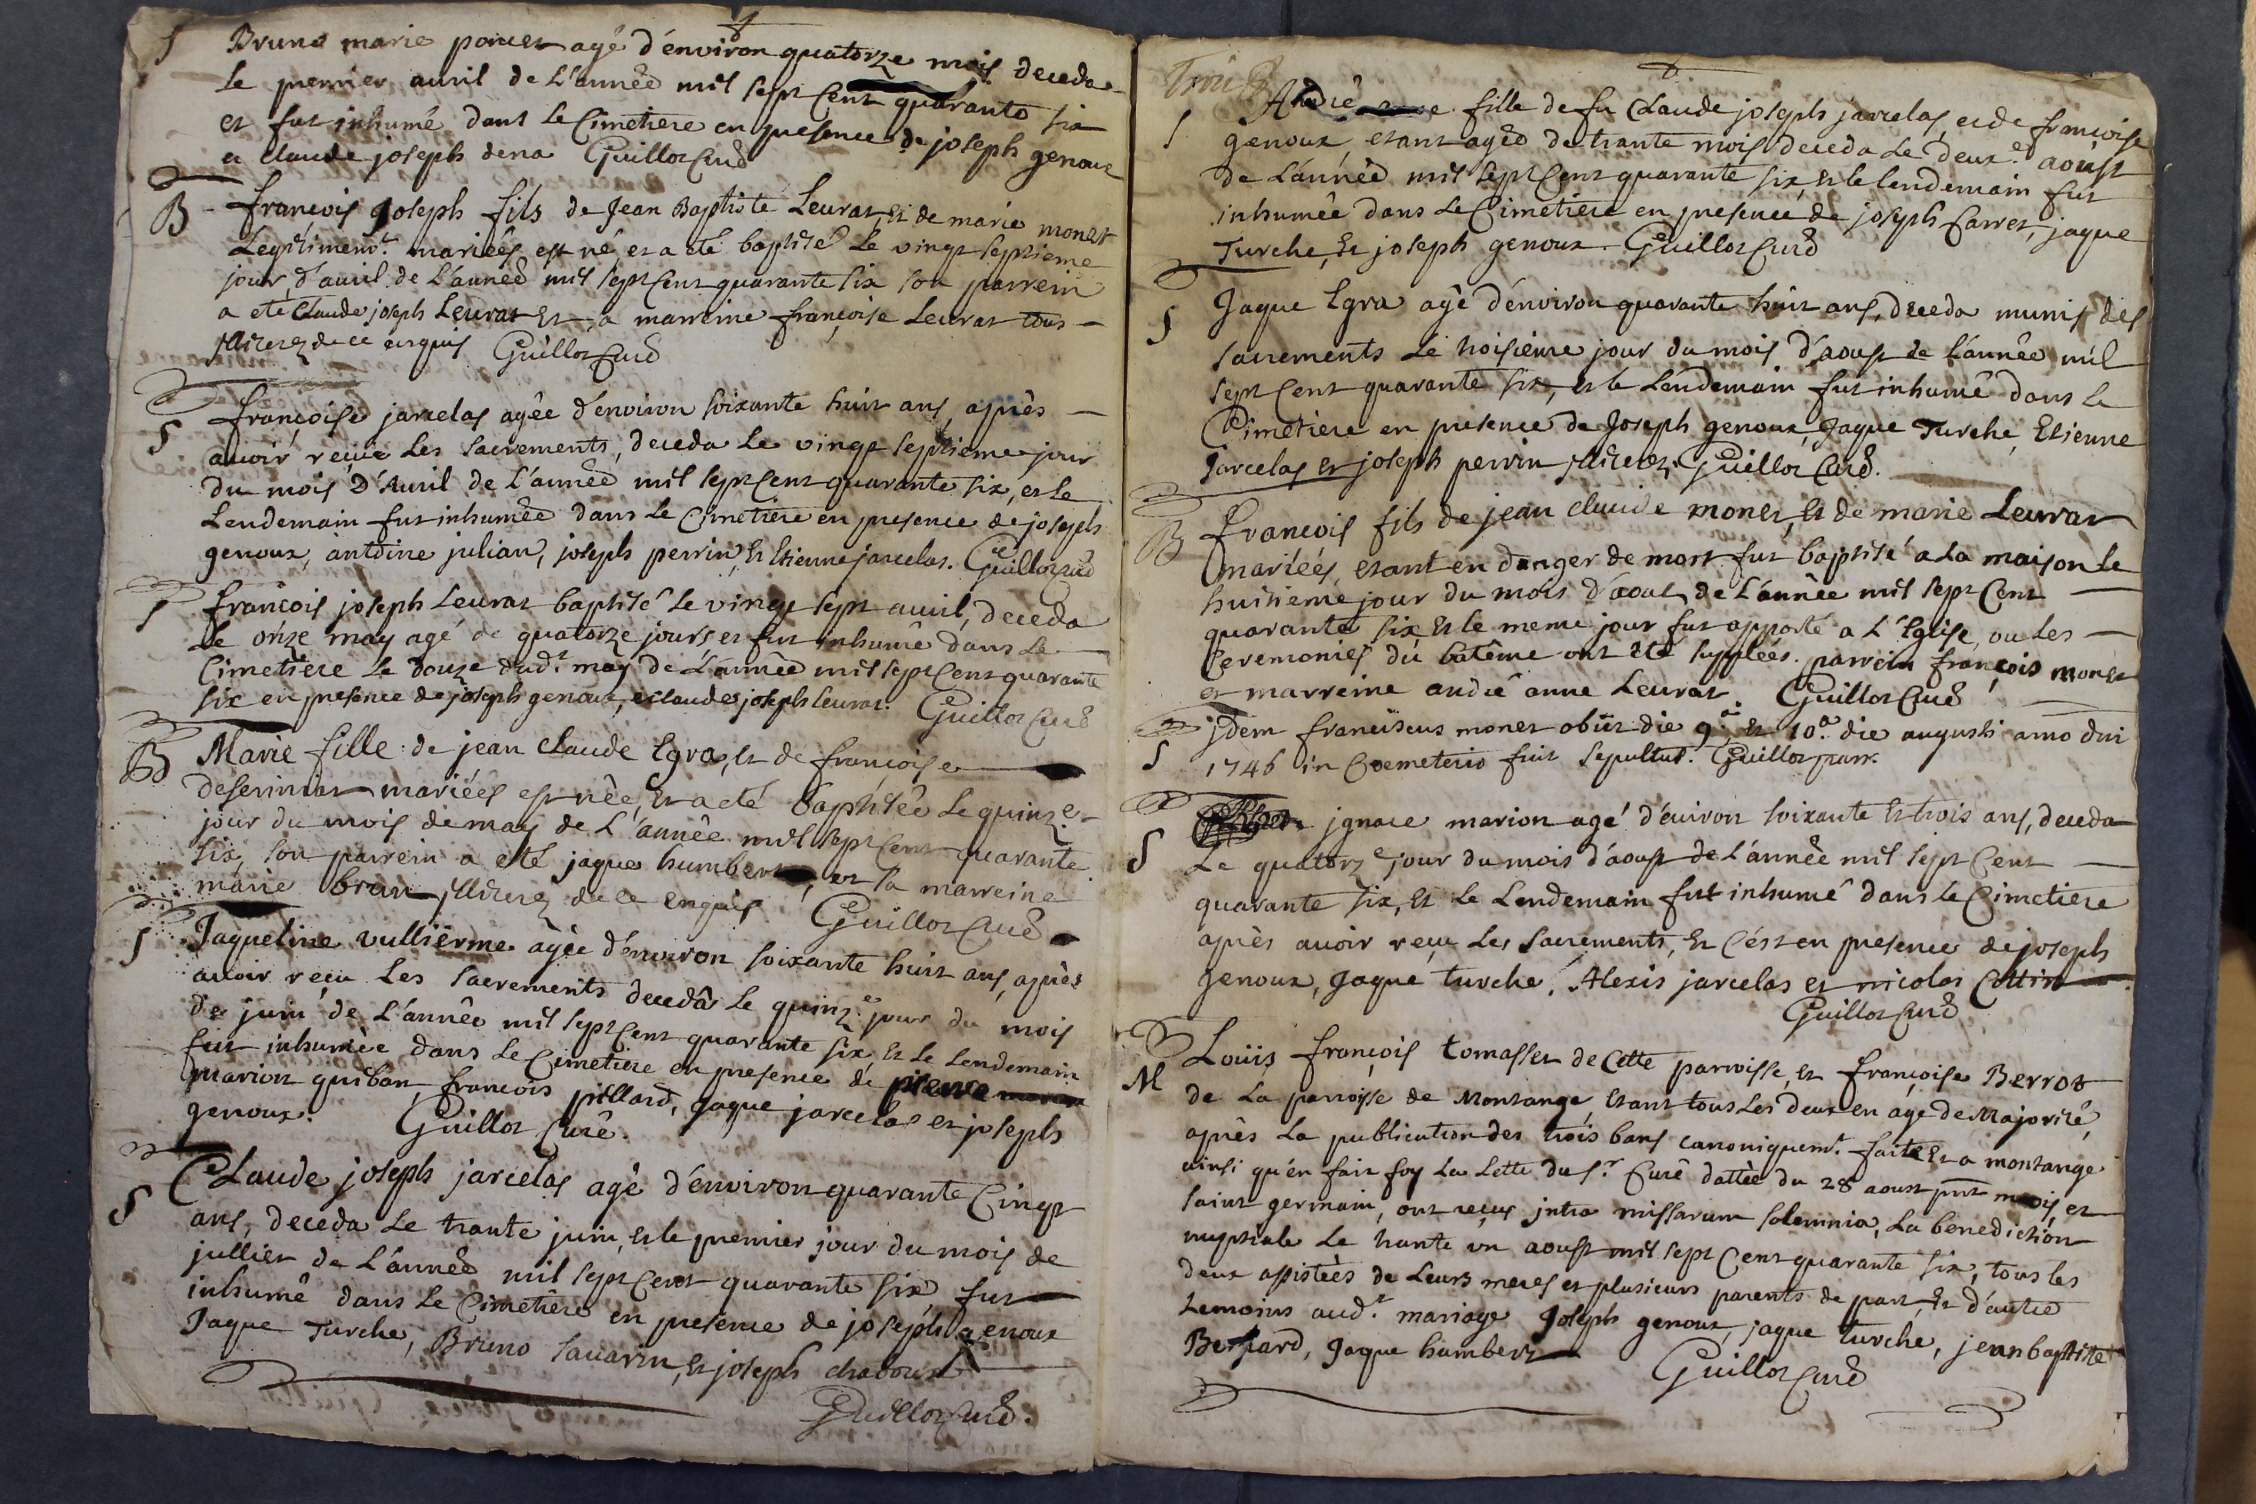 S Bruno marie poncet agé d'énviron quatorze mois deceda
Le premier auril de L'année mil sept Cent quarante six
et fut inhumé dans le Cimetiere en presence de joseph genoux
et claude joseph dena Guillot Curé
B francois Joseph fils de Jean Baptiste Leurat, et de marie monet
Legitimemt. mariées est né et a eté baptisé Le vingt septieme
jour d'auril de L'année mil sept Cent quarante six son parrein
a eté Claude joseph Leurat et sa marreine françoise Leurat tous
illiterez de ce enquis Guillot Curé
S françoise jarcelas agée d'énviron soixante huit ans après
auoir reçue Les sacrements, deceda Le vingt septieme jour
du mois D'Auril de L'année mil sept Cent quarante six, et Le
Lendemain fut inhumée dans Le Cimetiere en presence de joseph
genoux, antoine julian, joseph perrin, et Etienne jarcelas. Guillot Curé
S françois joseph Leurat baptisé Le vingt sept auril, deceda
Le onze may agé de quatorze jours et fut inhumé dans Le
Cimetiere Le douze dudt. may de L'année mil sept Cent quarante
six en presence de joseph genoux, et claude joseph Leurat. Guillot Curé
B Marie fille de jean claude Egra, et de françoise
mariéés est née, et a eté baptisée Le quinze
jour du mois de may de L'année mil sept Cent quarante
six, son parrein a eté jaque humbert, et sa marreine
marie brun illiterez de ce enquis Guillot Curé
S Jaqueline vullierme agée d'énviron soixante huit ans, après
auoir reçu Les sacrements decedas Le quinze jour du mois
de juin de L'année mil sept Cent quarante six, et Le Lendemain
fut inhumée dans Le Cimetiere en presence de pierre
marion quiban, francois pillard, jaque jarcelas et joseph
genoux. Guillot Curé.
S Claude joseph jarcelas agé d'énviron quarante Cinqt
ans, deceda Le trante juin, et le premier jour du mois de
jullier de L'année mil sept Cent quarante six fut
inhumé dans Le Cimetiere en presence de joseph genoux
Jaque Turche, Bruno sauarin, et joseph
Guillot Curé.
S André fille de fu Claude joseph jarcelas, et de françoise
genoux, etant agéé de trante mois deceda Le deuxe. aoust
de L'année mil sept Cent quarante six et le lendemain fut
inhumée dans Le Cimetiere en presence de joseph Carret, jaque
Turche, Et joseph genoux. Guillot Curé
S Jaque Egra agé d'énviron quarante huit ans, deceda munis des
sacrements Le troisieme jour du mois d'aoust de L'année mil
sept Cent quarante six, et le Lendemain fut inhumé dans Le
Cimetiere en presence de Joseph genoux, Jaque Turche, Etienne
Jarcelas et joseph perrin illiterez. Guillot Curé.
B François fils de jean claude monet, et de marie Leurat
mariéés, etant en danger de mort fut baptisé a La maison le
huitieme jour du mois d'aout, de L'année mil sept Cent
quarante six et le meme jour fut apporté a L'Eglise, ou Les
Ceremonies du batême ont été supplées. parrein françois monet
et marreine andré anne Leurat. Guillot Curé
S jdem franciscus monet obiit die 9a. et 10a. die augusti anno dni
1746 in Coemeterio fuit sepultus. Guillot parr.
S jgnace marion agé d'énviron soixante et trois ans, deceda
Le quatorze jour du mois d'aoust de L'année mil sept Cent
quarante six, et Le Lendemain fut inhumé dans Le Cimetiere
après auoir reçu Les sacrements, Et C'ést en presence de joseph
genoux, Jaque turche, Alexis jarcelas et nicolas Cottin
Guillot Curé
M Loüis françois tomasset de Cette parroisse, et françoise Berrot
de La parroisse de Montange, etant tous Les deux en age de Majorité,
après La publication des trois bans canoniquemt. faite Et a montange
ainsi qu'en fait foy La Lettre du sr. Curé dattée du 28 aoust pnt mois, et
saint germain, ont reçus jntra missarum solemnia, La benediction
nuptiale Le trante un aoust mil sept Cent quarante six, tous les
deux assistéés de Leurs meres et plusieurs parents de part, Et d'autre
temoins audt. mariage Joseph genoux, jaque turche, jean baptiste
Bernard, Jaque humbert Guillot Curé